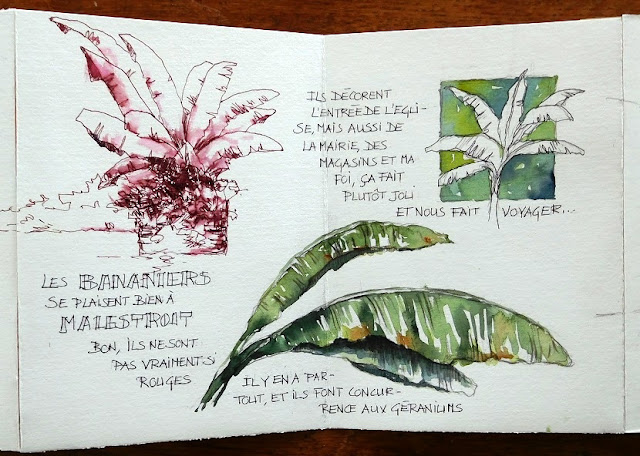 LES BANANIERS
SE PLAISENT BIEN À
MALESTROIT
BON, ILS NE SONT
PAS VRAIMENT SI
ROUGES
ILS DÉCORENT
L'ENTRÉE DE L'EGLI-
SE, MAIS AUSSI DE
LA MAIRIE, DES
MAGASINS ET MA
FOI, ÇA FAIT
PLUTÔT JOLI
ET NOUS FAIT VOYAGER...
IL Y EN A PAR-
TOUT, ET ILS FONT CONCUR-
RENCE AUX GÉRANIUMS